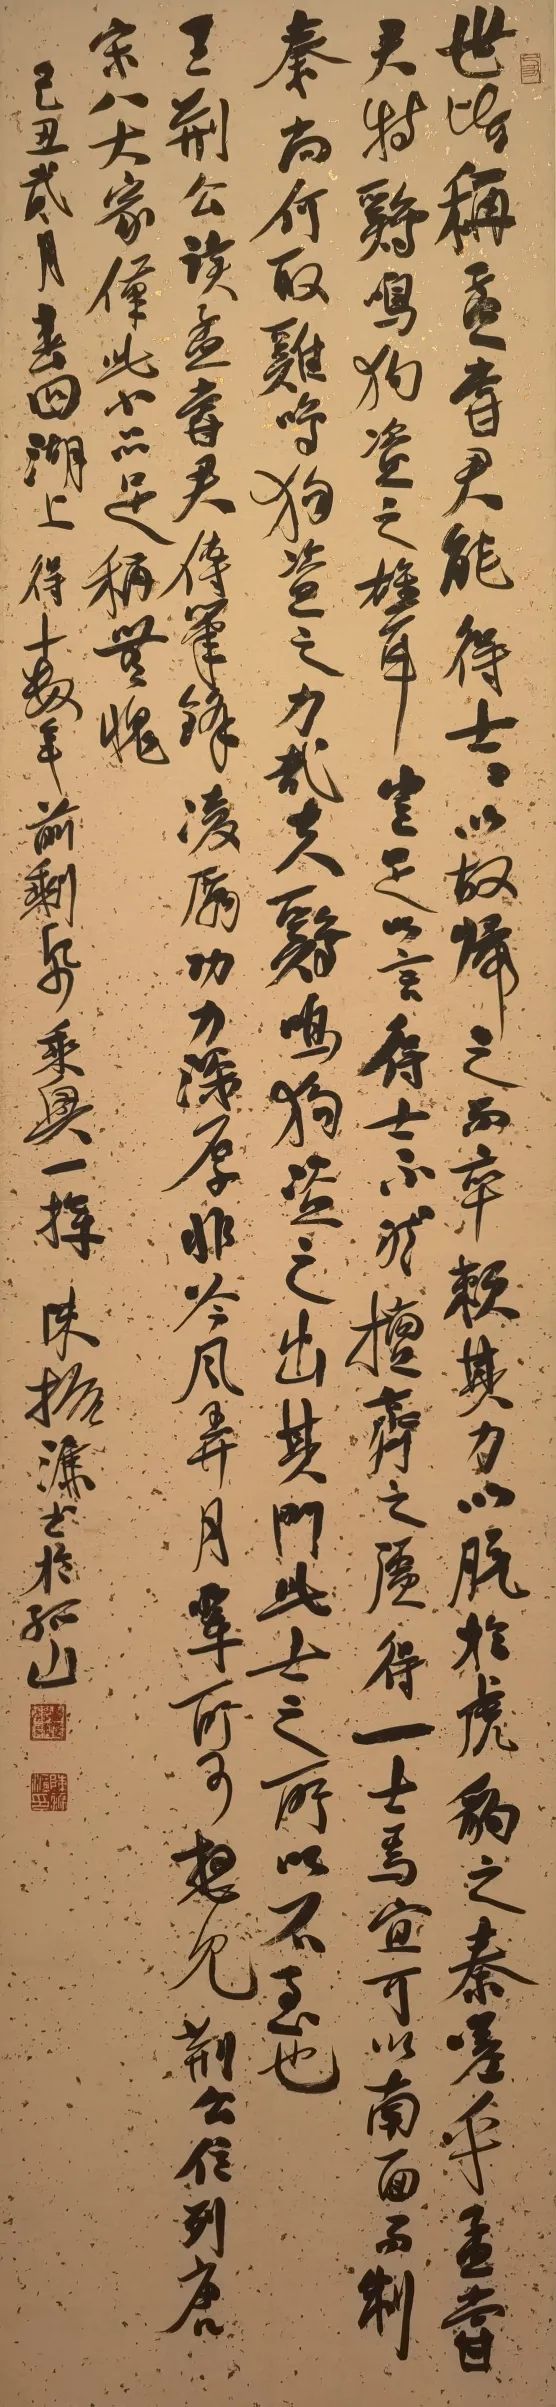 世皆稱孟嘗君能得士士以故歸之而卒賴其力以脫於虎豹之秦嗟乎孟嘗
君特鷄鳴狗盗之雄耳豈足以言得士不然擅齊之强得一士焉宜可以南面而制
秦尚何取雞鳴狗盗之力哉夫鷄鳴狗盗之出其門此士之所以不至也
王荆公读孟嘗君傳筆鋒凌厲功力深厚非吟風弄月輩所可想見荆公位列唐
宋八大家僅此小品足稱無愧
己丑贰月春回湖上得十数年前剩紙乘興一揮陳振濂書於孤山